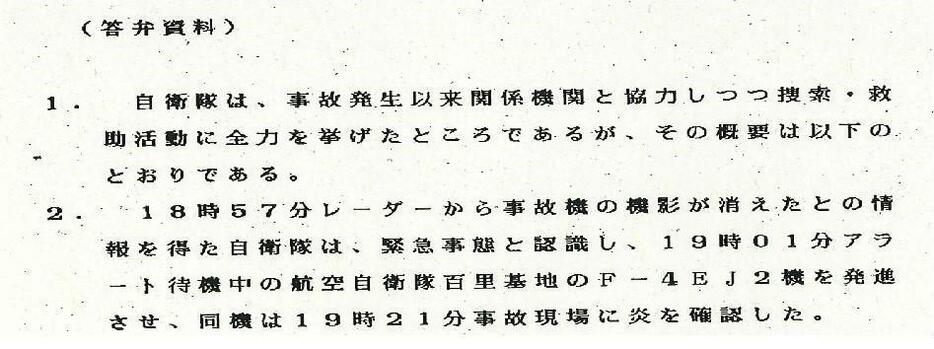 （答弁資料）
１．　自衛隊は、事故発生以来関係機関と協力しつつ捜索・救
助活動に全力を挙げたところであるが、その概要は以下の
とおりである。
２．　１８時５７分レーダーから事故機の機影が消えたとの情
報を得た自衛隊は、緊急事態と認識し、１９時０１分アラ
ート待機中の航空自衛隊百里基地のＦ－４ＥＪ２機を発進
させ、同機は１９時２１分事故現場に炎を確認した。